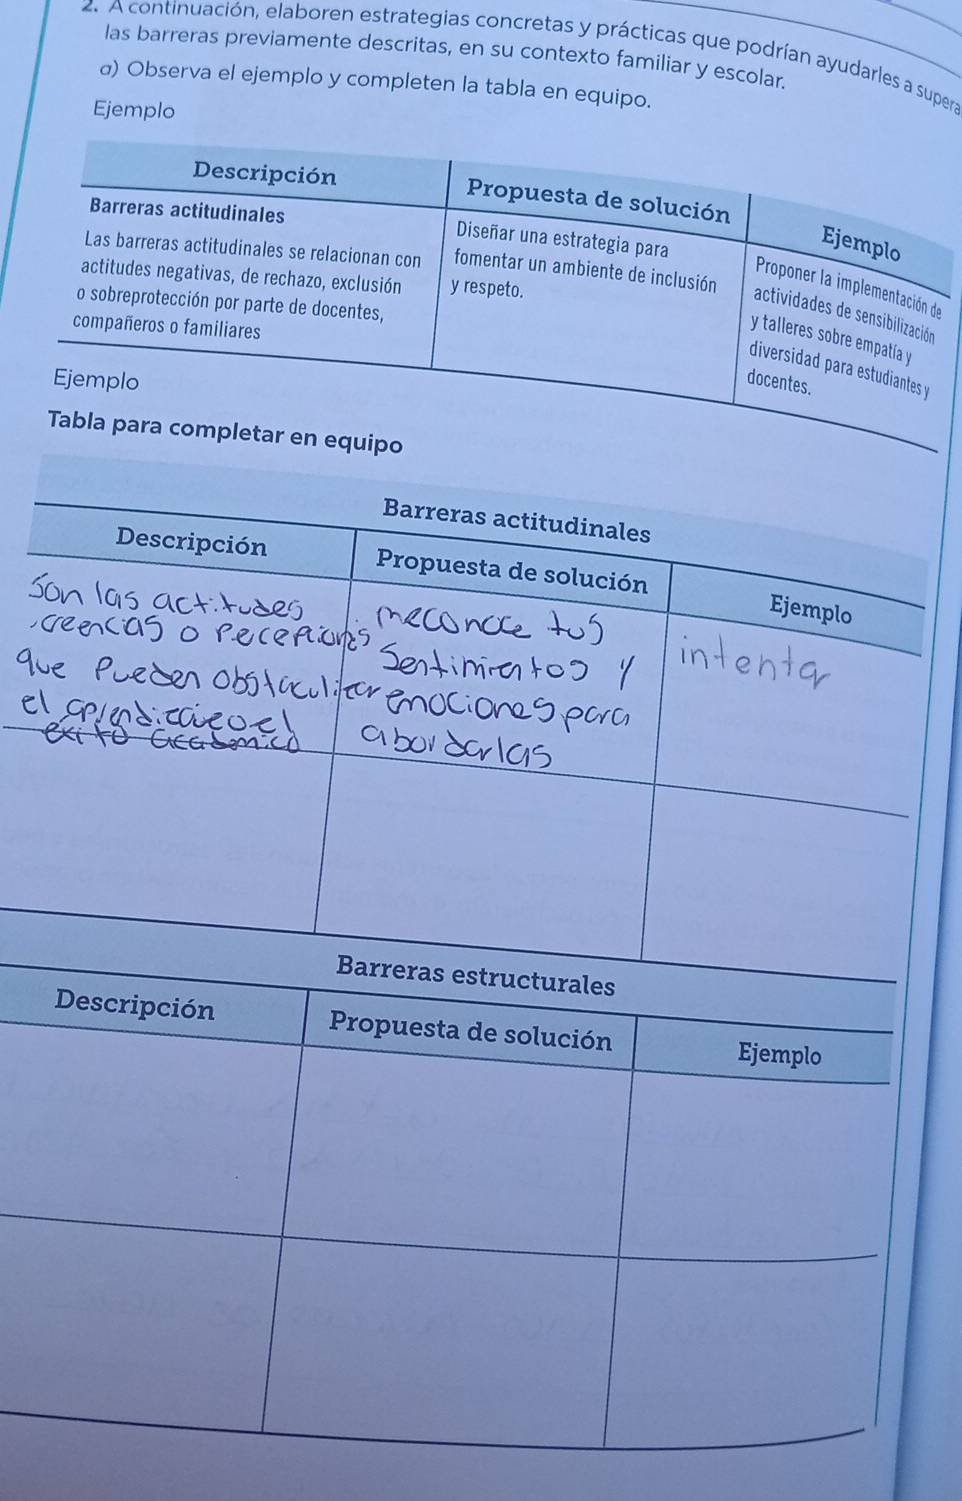 2. A continuación, elaboren estrategias concretas y prácticas que podrían ayudarles a supera
las barreras previamente descritas, en su contexto familiar y escolar.
a) Observa el ejemplo y completen la tabla en equipo.
Ejemplo
Descripción
Propuesta de solución
Ejemplo
Barreras actitudinales
Las barreras actitudinales se relacionan con
actitudes negativas, de rechazo, exclusión
o sobreprotección por parte de docentes,
compañeros o familiares
Diseñar una estrategia para
fomentar un ambiente de inclusión
y respeto.
Proponer la implementación de
actividades de sensibilización
y talleres sobre empatía y
diversidad para estudiantes y
docentes.
Ejemplo
Tabla para completar en equipo
Barreras actitudinales
Descripción
Propuesta de solución
Ejemplo
Son las actitudes
creencias o
que pueden obstaculizar
el
exito academico
tus
Sentimientos y
emociones para
abordarlas
intentar
Barreras estructurales
Descripción
Propuesta de solución
Ejemplo